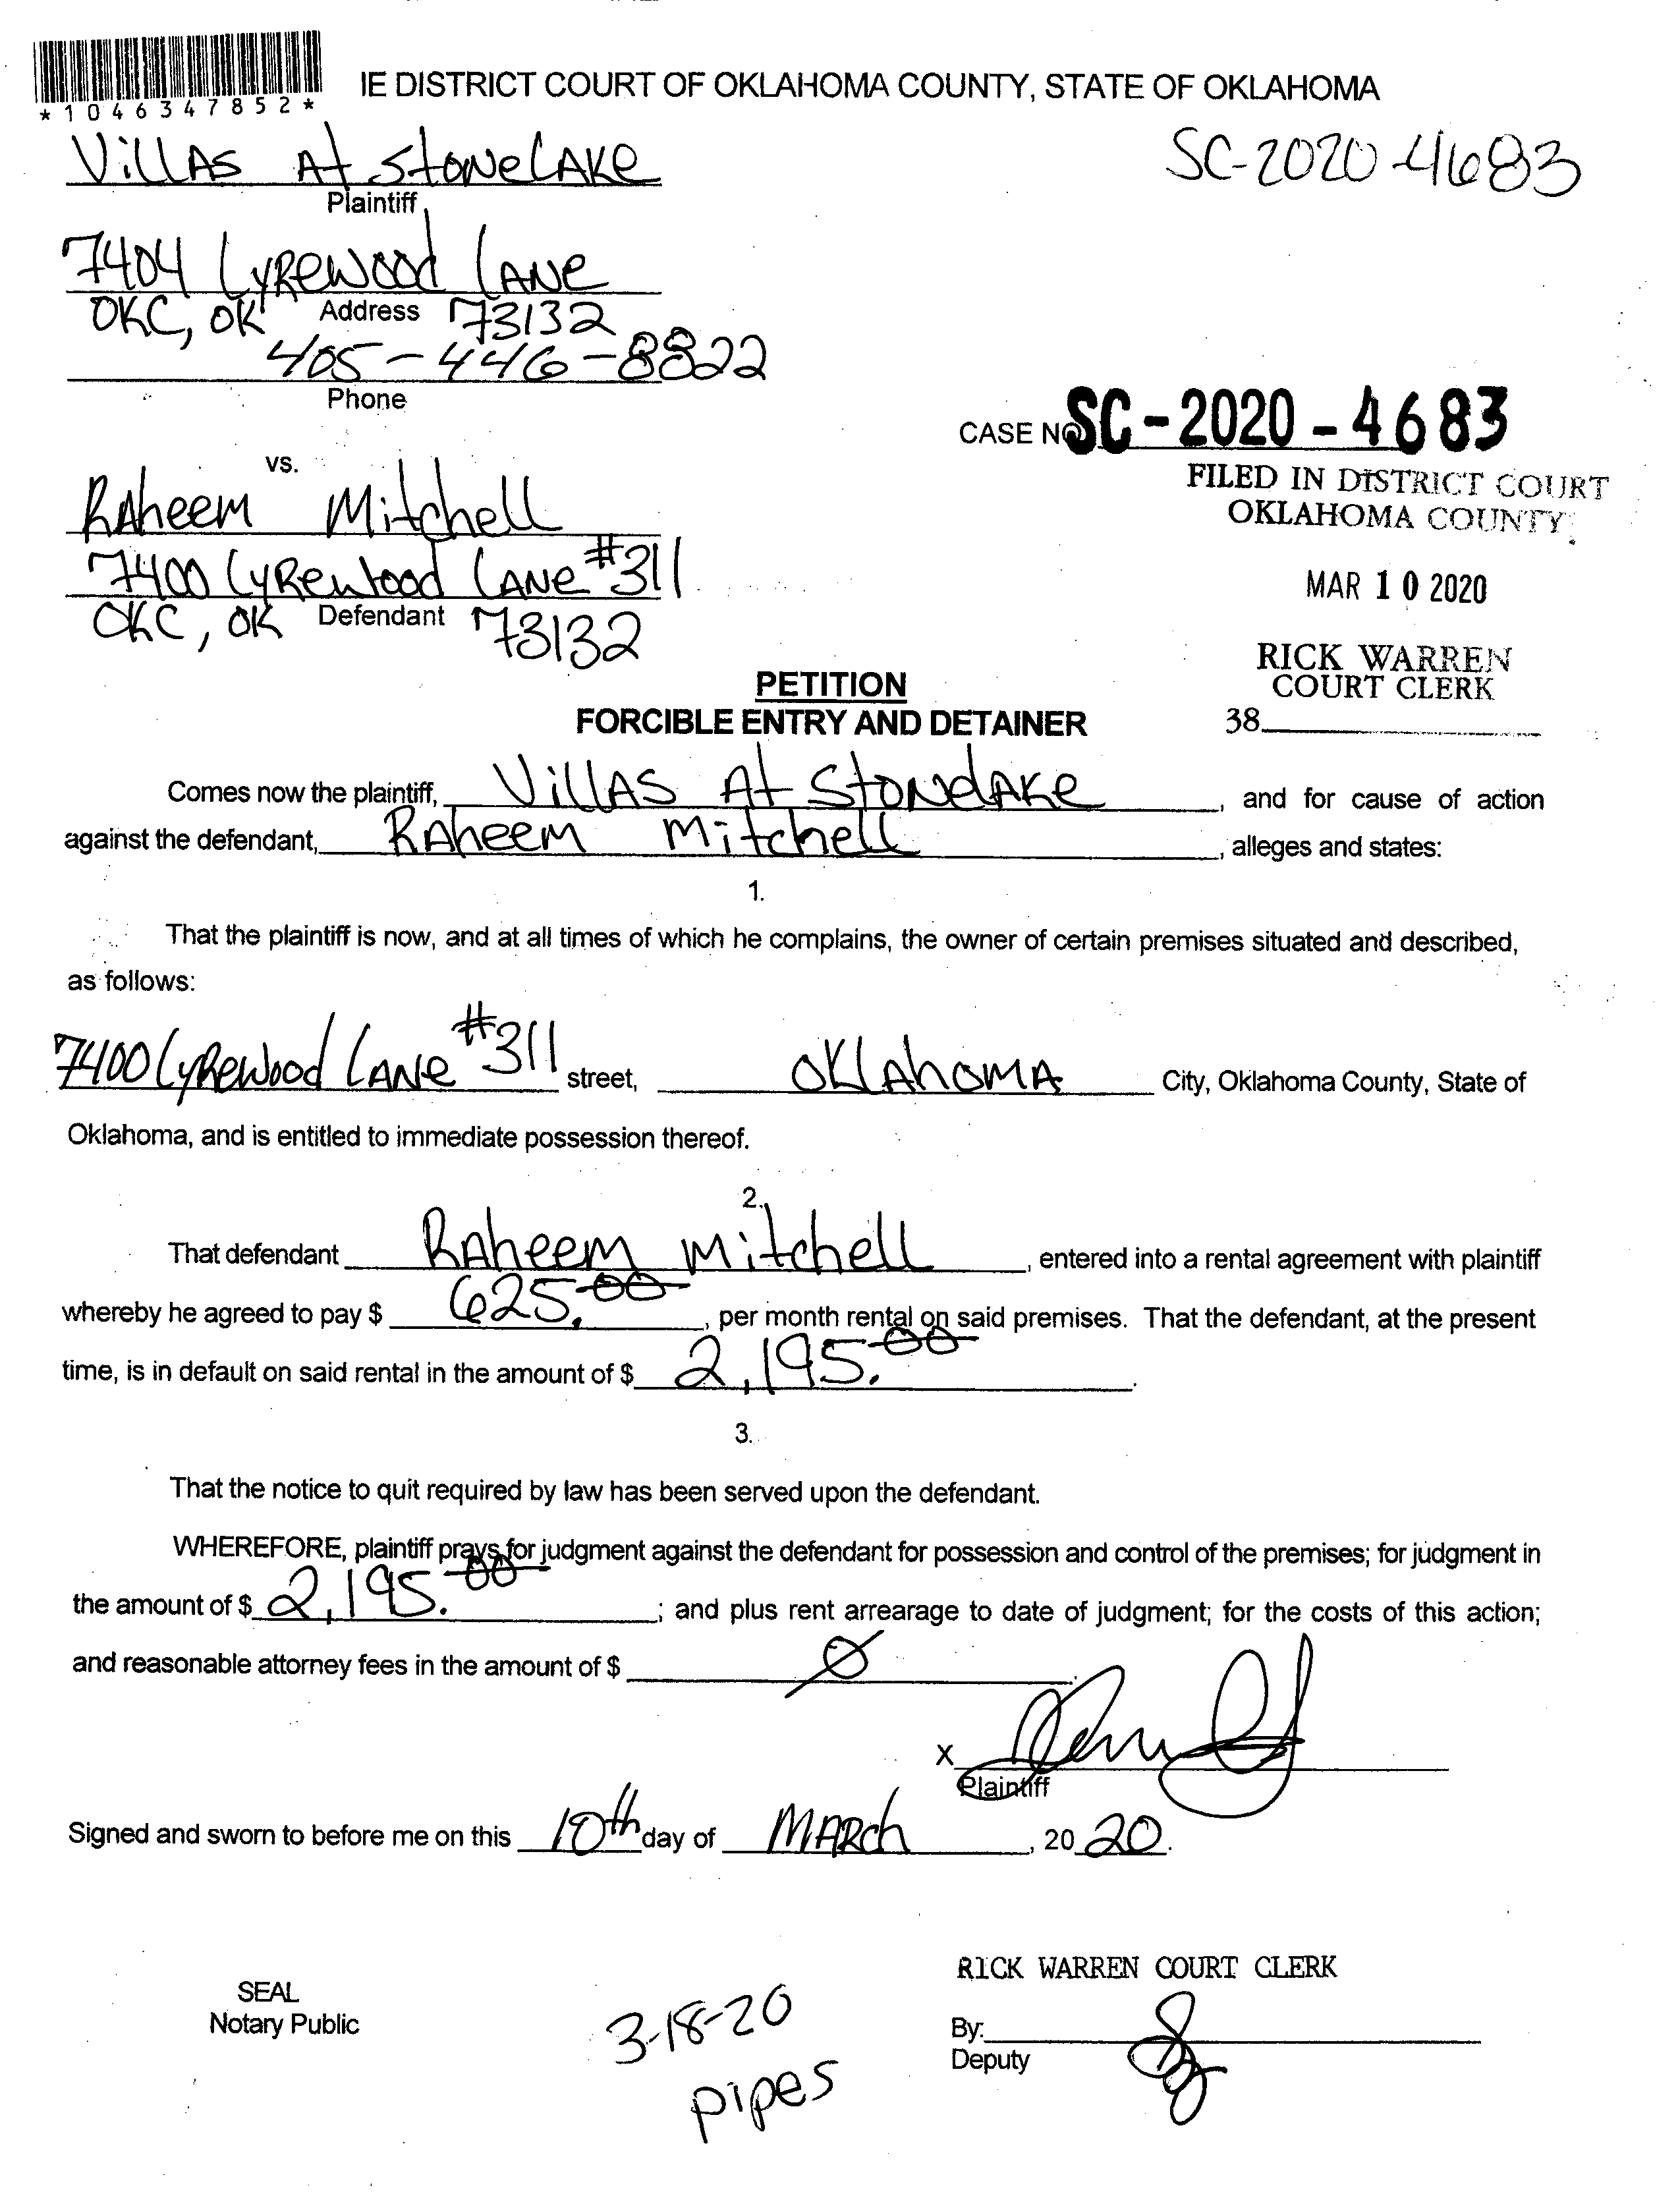 *1046347852*
IE DISTRICT COURT OF OKLAHOMA COUNTY, STATE OF OKLAHOMA
Villas At Stonelake
SC-2020-4683
Plaintiff
7404 Lyrewood Lane
OKC, OK Address 73132
405-446-8822
Phone
CASE NO. SC-2020-4683
vs.
FILED IN DISTRICT COURT
OKLAHOMA COUNTY
Raheem Mitchell
7400 Lyrewood Lane #311
MAR 10 2020
OKC, OK Defendant 73132
RICK WARREN
COURT CLERK
38
PETITION
FORCIBLE ENTRY AND DETAINER
Comes now the plaintiff, Villas At Stonelake, and for cause of action
against the defendant, Raheem Mitchell, alleges and states:
1.
That the plaintiff is now, and at all times of which he complains, the owner of certain premises situated and described,
as follows:
7400 Lyrewood Lane #311 street, Oklahoma City, Oklahoma County, State of
Oklahoma, and is entitled to immediate possession thereof.
2.
That defendant Raheem Mitchell, entered into a rental agreement with plaintiff
whereby he agreed to pay $ 625.00, per month rental on said premises. That the defendant, at the present
time, is in default on said rental in the amount of $ 2,195.00.
3.
That the notice to quit required by law has been served upon the defendant.
WHEREFORE, plaintiff prays for judgment against the defendant for possession and control of the premises; for judgment in
the amount of $ 2,195.00; and plus rent arrearage to date of judgment; for the costs of this action;
and reasonable attorney fees in the amount of $ Ø.
X
Plaintiff
Signed and sworn to before me on this 10th day of March, 20 20.
RICK WARREN COURT CLERK
SEAL
Notary Public
3-18-20
pipes
By:
Deputy